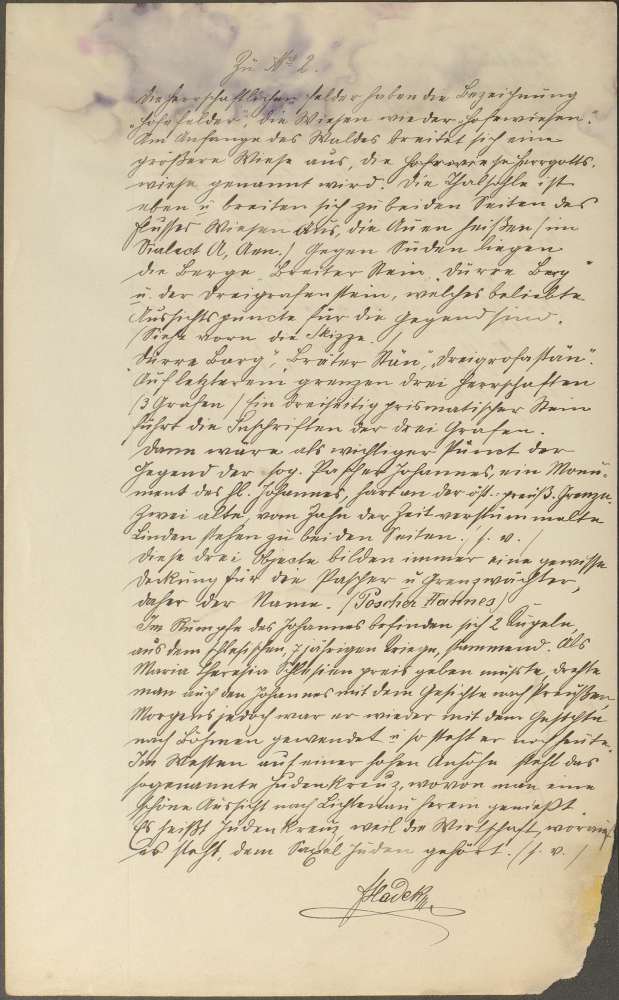 Zu No 2.
Die herrschaftlichen Felder haben die Bezeichnung
„Hofefelder", die Wiesen wieder „Hofewiesen".
Am Anfange des Waldes breitet sich eine
größere Wiese aus, die Herrgotts-
wiese genannt wird. Die Thalsohle ist
eben u. breiten sich zu beiden Seiten des
Flusses Wiesen aus, die Auen heißen (im
Dialect A, Aen.) Gegen Süden liegen
die Berge „Breiter Stein, Dürre Berg"
u. der Dreigrafenstein, welches beliebte
Aussichtspuncte für die Gegend sind.
(Siehe vorn die Skizze.)
„Durre Barg", „Bräter Stän", „Dreigrofastän".
Auf letzterem grenzen drei Herrschaften
(3 Grafen) Ein dreiseitig prismatischer Stein
führt die Inschriften der drei Grafen.
Dann wäre als wichtiger Punct der
Gegend der sog. Pascher Johannes, ein Monu-
ment des hl. Johannes, hart an der öst.-preuß. Grenze.
Zwei alte, vom Zahn der Zeit verstümmelte
Linden stehen zu beiden Seiten. (s. v.)
Diese drei Objecte bilden immer eine gewisse
Deckung für die Pascher u. Grenzwächter,
daher der Name. (Poscher Hannes)
Im Rumpfe des Johannes befinden sich 2 Kugeln,
aus dem schlesischen, 7jährigen Kriege, stammend. Als
Maria Theresia Schlesien preis geben mußte, drehte
man auch den Johannes mit dem Gesichte nach Preußen
Morgens jedoch war er wieder mit dem Gesichte
nach Böhmen gewendet u. so steht er noch heute.
Im Westen auf einer hohen Anhöhe steht das
sogenannte Judenkreuz, wovon man eine
schöne Aussicht nach Lichtenau herein genießt.
Es heißt Judenkreuz, weil die Wirtschaft, worauf
es steht, dem Juden gehört. (s. v.)
Hladek